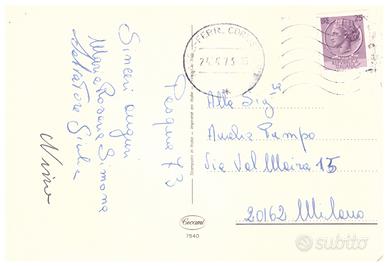 Sinceri auguri
Maria Rosaria Simona
Salvatore Giulia
Nino
Pasqua 73
Alla Sig.ra
Amalia Pampo
Via Val Maira 15
20162 Milano
Cecami
7540
subito